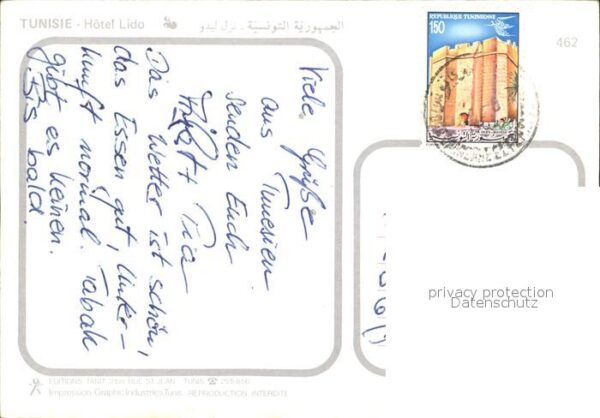 TUNISIE - Hôtel Lido
الجمهورية التونسية - نزل ليدو
REPUBLIQUE TUNISIENNE
150
462
Viele Grüße
aus
Tunesien
senden Euch
Das Wetter ist schön,
das Essen gut, Unter-
kunft normal. Tabak
gibt es keinen.
Bis bald!
privacy protection
Datenschutz
EDITIONS TANIT RUE ST JEAN - TUNIS ☎
Impression Graphic Industries Tunis REPRODUCTION INTERDITE